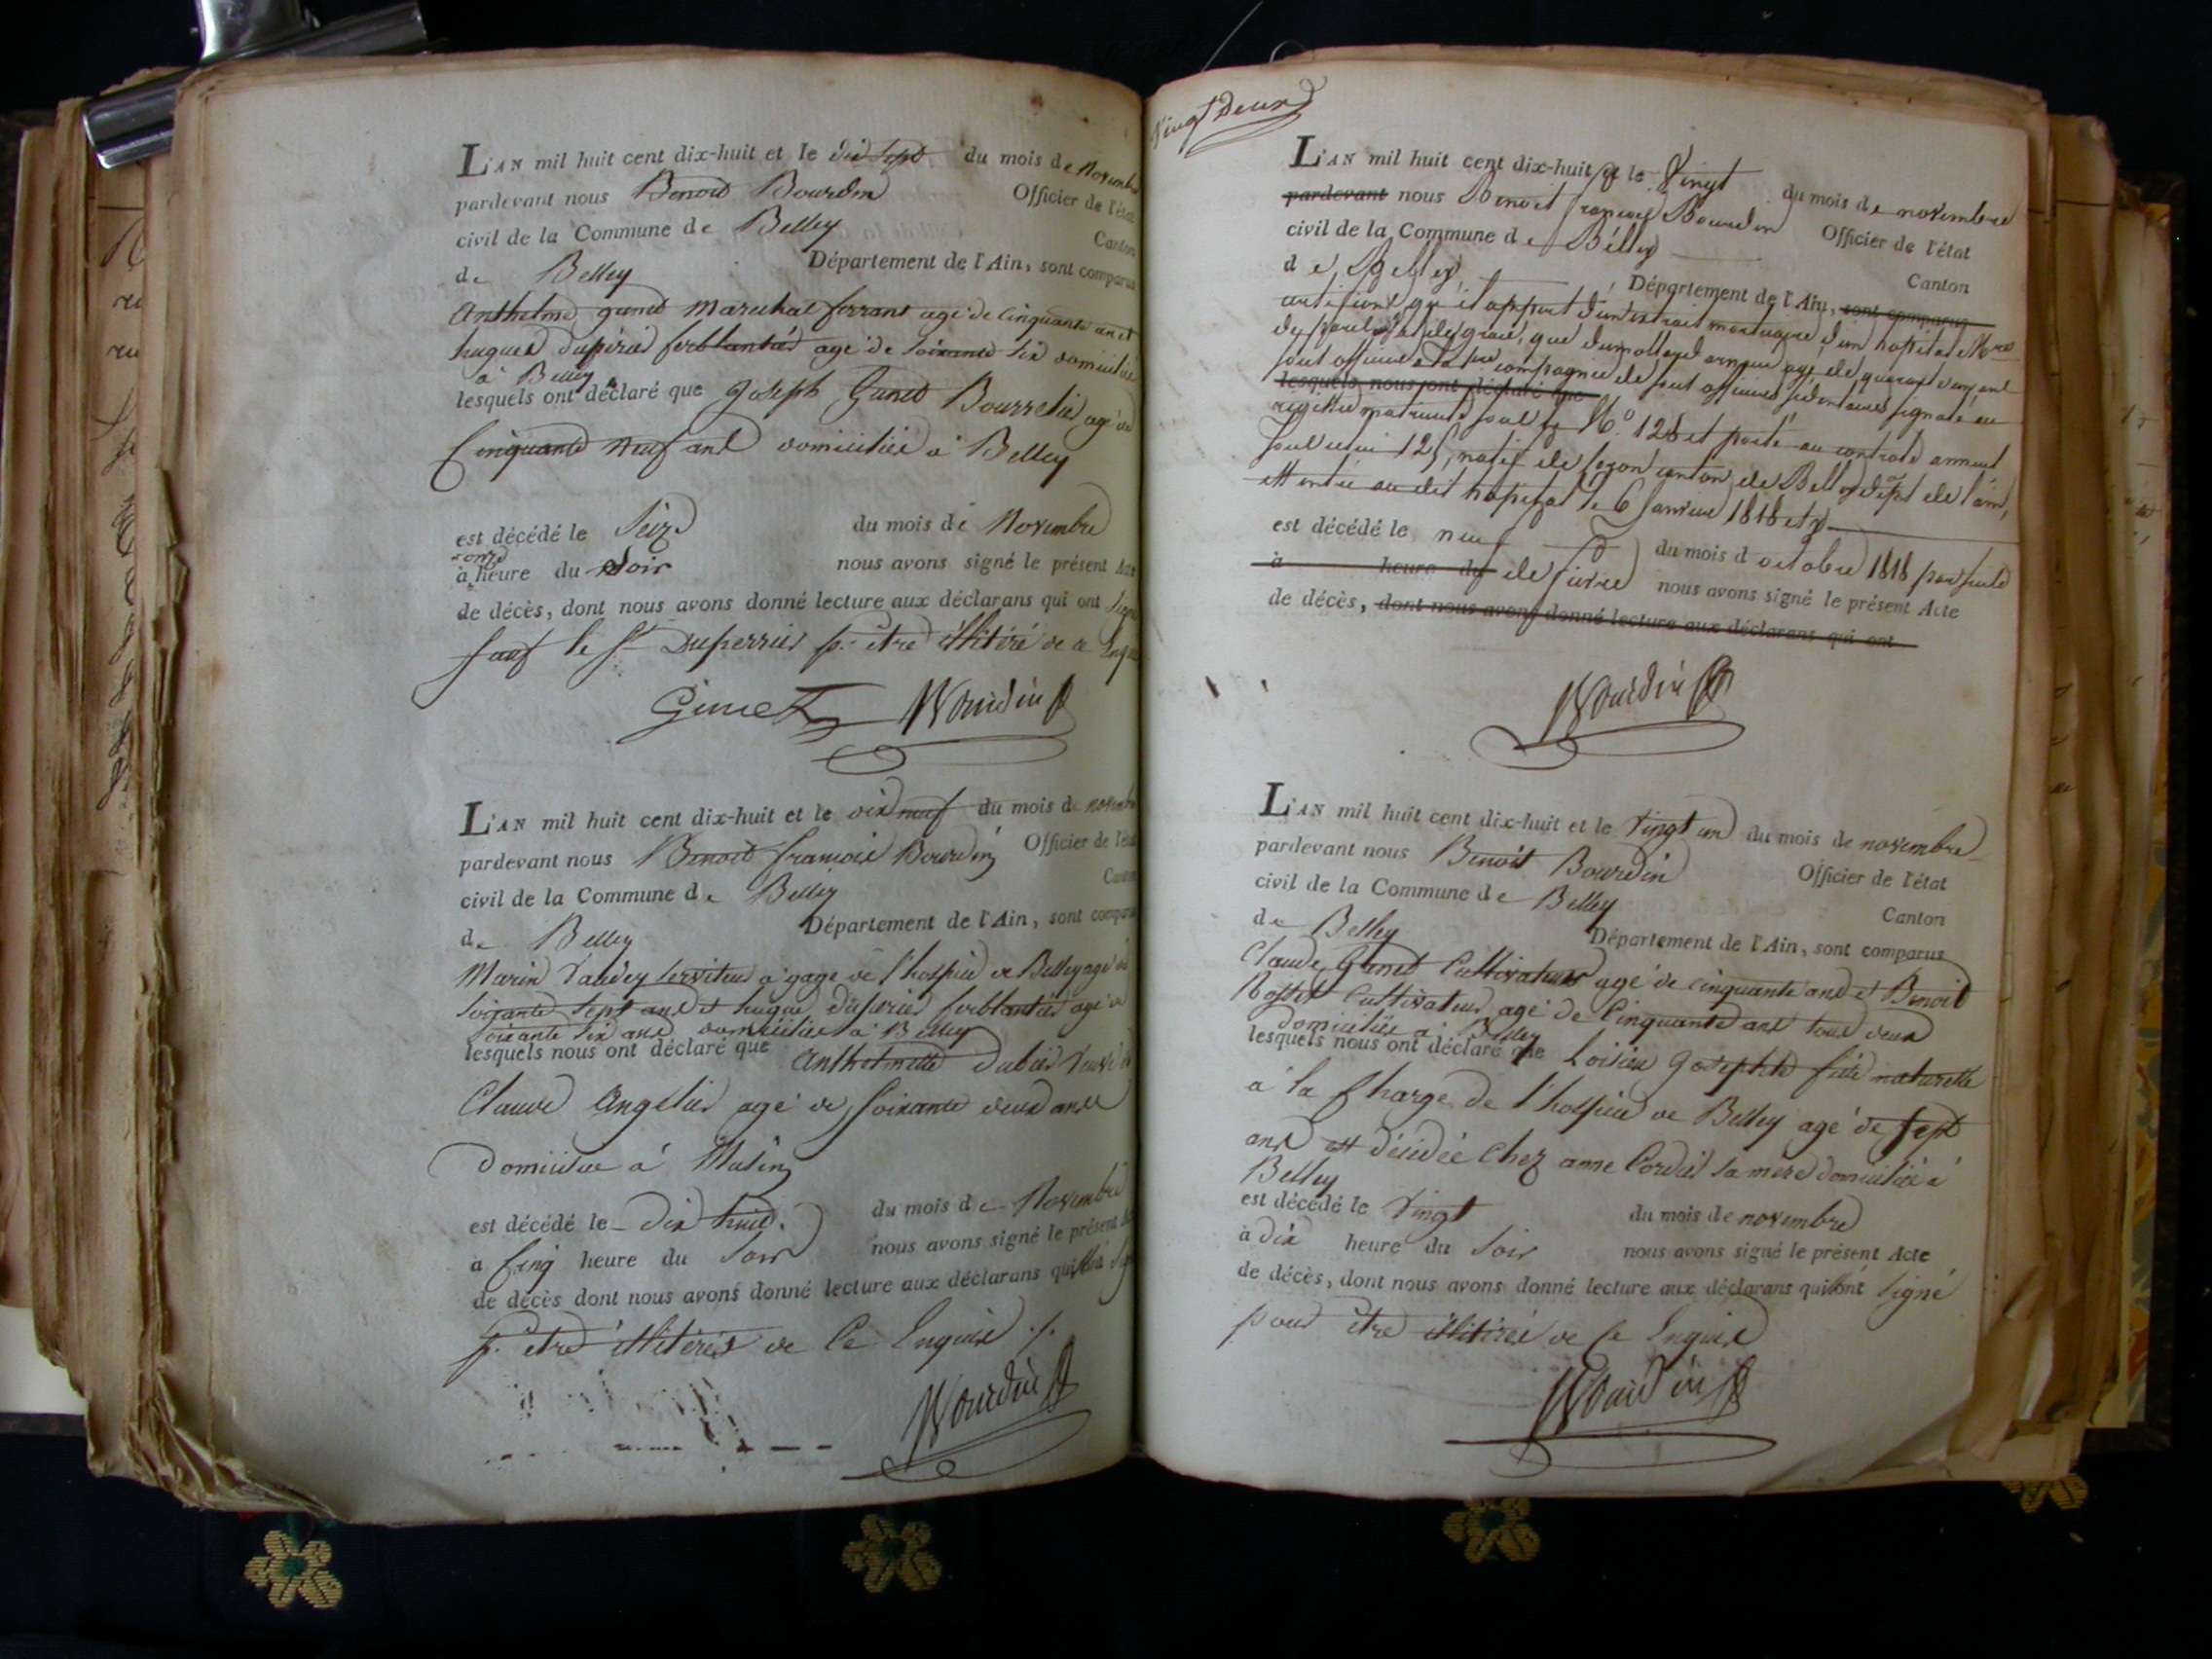 L'AN mil huit cent dix-huit et le dix sept du mois de Novembre
pardevant nous Benoit Bourdin Officier de l'état
civil de la Commune de Belley Canton
de Belley Département de l'Ain, sont comparus
Anthelme gunet Marechal ferrant agé de Cinquante an et
hugues Duperier ferblantier agé de Soixante six domiciliés
à Belley
lesquels ont déclaré que joseph Gunet Bourrelier agé de
Cinquante Neuf ans domicilié à Belley
est décédé le Seize du mois de Novembre
onze
à heure du Soir nous avons signé le présent Acte
de décès, dont nous avons donné lecture aux déclarans qui ont Signé
sauf le Sr Duperrier p. etre illitéré de ce Enquis
Ginet Bourdin
L'AN mil huit cent dix-huit et le dix neuf du mois de novembre
pardevant nous Benoit françois Bourdin Officier de l'état
civil de la Commune de Belley Canton
de Belley Département de l'Ain, sont comparus
Marin Vaudey serviteur a gage de l'hospice de Belley agé de
soixante sept ans et hugue Duperier ferblantier agé de
soixante six ans domiciliés à Belley
lesquels nous ont déclaré que Anthelmette Veuve de
Claude Angelier agé de Soixante deux ans
Domiciliée à
est décédé le Dix huit du mois de Novembre
à Cinq heure du Soir nous avons signé le présent
de décès dont nous avons donné lecture aux déclarans qui
p. etre illitérés de Ce Enquis ./.
Bourdin
Vingt Deux
L'AN mil huit cent dix-huit et le Vingt du mois de novembre
pardevant nous Benoit françois Bourdin Officier de l'état
civil de la Commune de Belley
de Belley Canton
Département de l'Ain, sont comparus
certifions qu'il appert d'un extrait mortuaire d'un hopital
que Dumollard agé de quarante ans
sous officier compagnie de sous officiers sédentaires signalé au
lesquels nous ont déclaré que
registre matricule sous le No. 128 et porté au controle annuel
sous celui 125, natif de canton de Belley dépt de l'ain,
et entré au dit hopital le 6 Janvier 1818 et
est décédé le neuf du mois d'octobre 1818 par suite
à heure du de fievre nous avons signé le présent Acte
de décès, dont nous avons donné lecture aux déclarans qui ont
Bourdin
L'AN mil huit cent dix-huit et le Vingt un du mois de novembre
pardevant nous Benoit Bourdin Officier de l'état
civil de la Commune de Belley Canton
de Belley Département de l'Ain, sont comparus
Claude Gunet Cultivateur agé de cinquante ans et Benoit
Rosset Cultivateur agé de Cinquante ans tous deux
domiciliés a Belley
lesquels nous ont déclaré que Josephte fille naturelle
a la Charge de l'hospice de Belley agé de sept
ans est décédée Chez anne Cordier sa mere domiciliée à
Belley
est décédé le Vingt du mois de novembre
à dix heure du Soir nous avons signé le présent Acte
de décès, dont nous avons donné lecture aux déclarans qui ont signé
pour etre illitérés de Ce Enquis
Bourdin